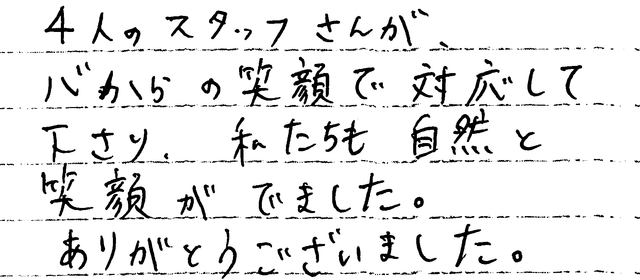 4人のスタッフさんが、
心からの笑顔で対応して
下さり、私たちも自然と
笑顔がでました。
ありがとうございました。